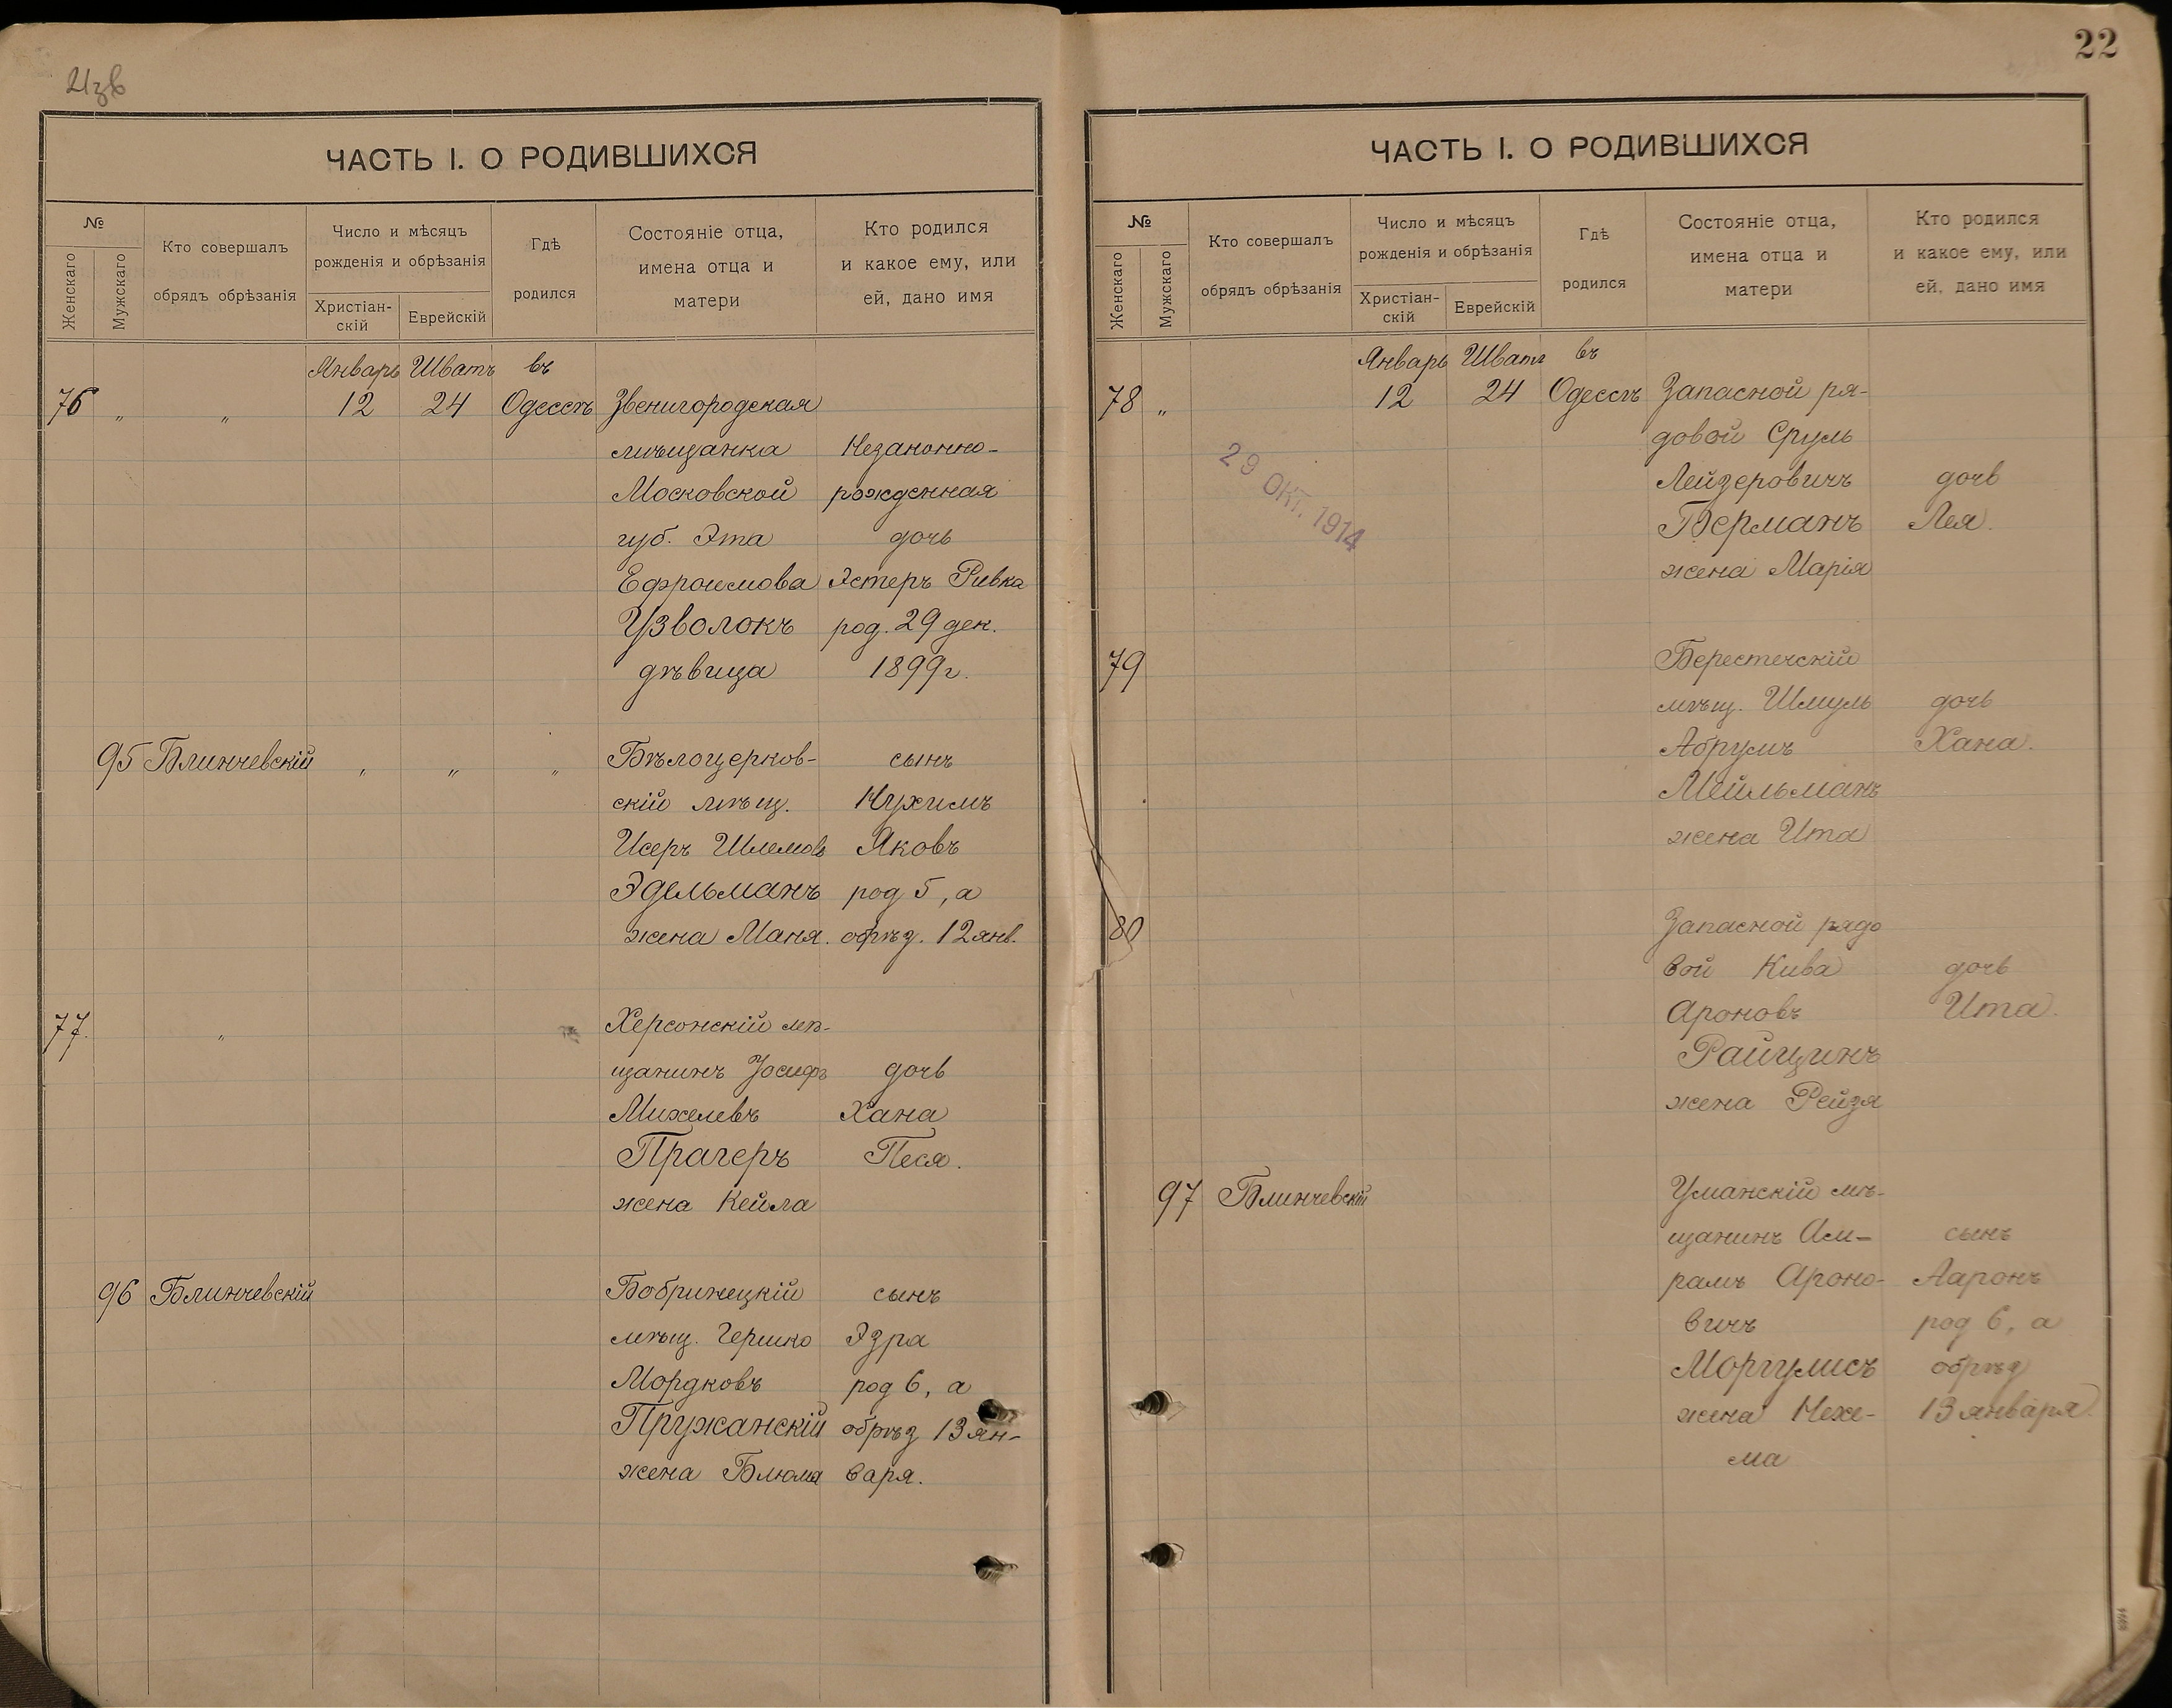 Изв
ЧАСТЬ I. О РОДИВШИХСЯ
№
Женскаго
Мужскаго
Кто совершалъ
обрядъ обрѣзанія
Число и мѣсяцъ
рожденія и обрѣзанія
Христіан-
скій
Еврейскій
Гдѣ
родился
Состояніе отца,
имена отца и
матери
Кто родился
и какое ему, или
ей, дано имя
Январь Шватъ въ
76 " " 12 24 Одессѣ Звенигородская
мѣщанка Незаконно-
Московской рожденная
губ. Эта дочь
Ефроимова Эстеръ Ривка
Узволокъ род. 29 дек.
дѣвица 1899г.
95 Блинчевскій " " " Бѣлоцерков- сынъ
скій мѣщ. Нухимъ
Исеръ Шлемовъ Яковъ
Эдельманъ род 5, а
жена Маня. обрѣз. 12 янв.
77. " Херсонскій мѣ-
щанинъ Іосифъ дочь
Михелевъ Хана
Прагеръ Песя.
жена Кейла
96 Блинчевскій Бобринецкій сынъ
мѣщ. Гершко Эзра
Мордковъ род 6, а
Пружанскій обрѣз 13 ян-
жена Блюма варя.
22
ЧАСТЬ I. О РОДИВШИХСЯ
№
Женскаго
Мужскаго
Кто совершалъ
обрядъ обрѣзанія
Число и мѣсяцъ
рожденія и обрѣзанія
Христіан-
скій
Еврейскій
Гдѣ
родился
Состояніе отца,
имена отца и
матери
Кто родился
и какое ему, или
ей, дано имя
Январь Шватъ въ
78 " 12 24 Одессѣ Запасной ря-
довой Сруль
Лейзеровичъ дочь
Берманъ Лея.
жена Марія
29 ОКТ. 1914
79 Берестечскій
мѣщ. Шмуль дочь
Абрумъ Хана.
Мейльманъ
жена Ита
80 Запасной рядо
вой Кива дочь
Ароновъ Ита.
Райцинъ
жена Рейзя
97 Блинчевскій Уманскій мѣ-
щанинъ Ам- сынъ
рамъ Ароно- Ааронъ
вичъ род 6, а
Моргулисъ обрѣз
жена Нехе- 13 января
ма